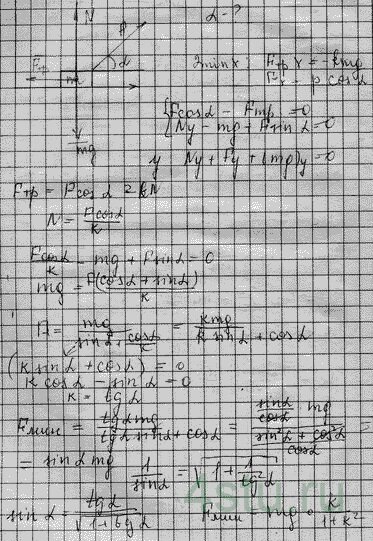 N
F
α-?
α
Fтр
m
mg
Fтр x = -kmg
Fx = F cosα
{Fcosα - Fтр = 0
Ny - mg + Fsinα = 0
y Ny + Fy + (mg)y = 0
Fтр = Fcosα = kN
N = Fcosα/k
Fcosα/k - mg + Fsinα = 0
mg = F(cosα + sinα)/k
F = mg/(sinα + cosα/k) = kmg/(k sinα + cosα)
(k sinα + cosα)' = 0
k cosα - sinα = 0
k = tgα
Fмин = tgα mg/(tgα sinα + cosα) = (sinα/cosα mg)/((sin²α + cos²α)/cosα)
= sinα mg 1/sinα = √(1 + 1/tg²α)
sinα = tgα/√(1 + tgα) Fмин = mg · k/(1+k²)
4stu.ru